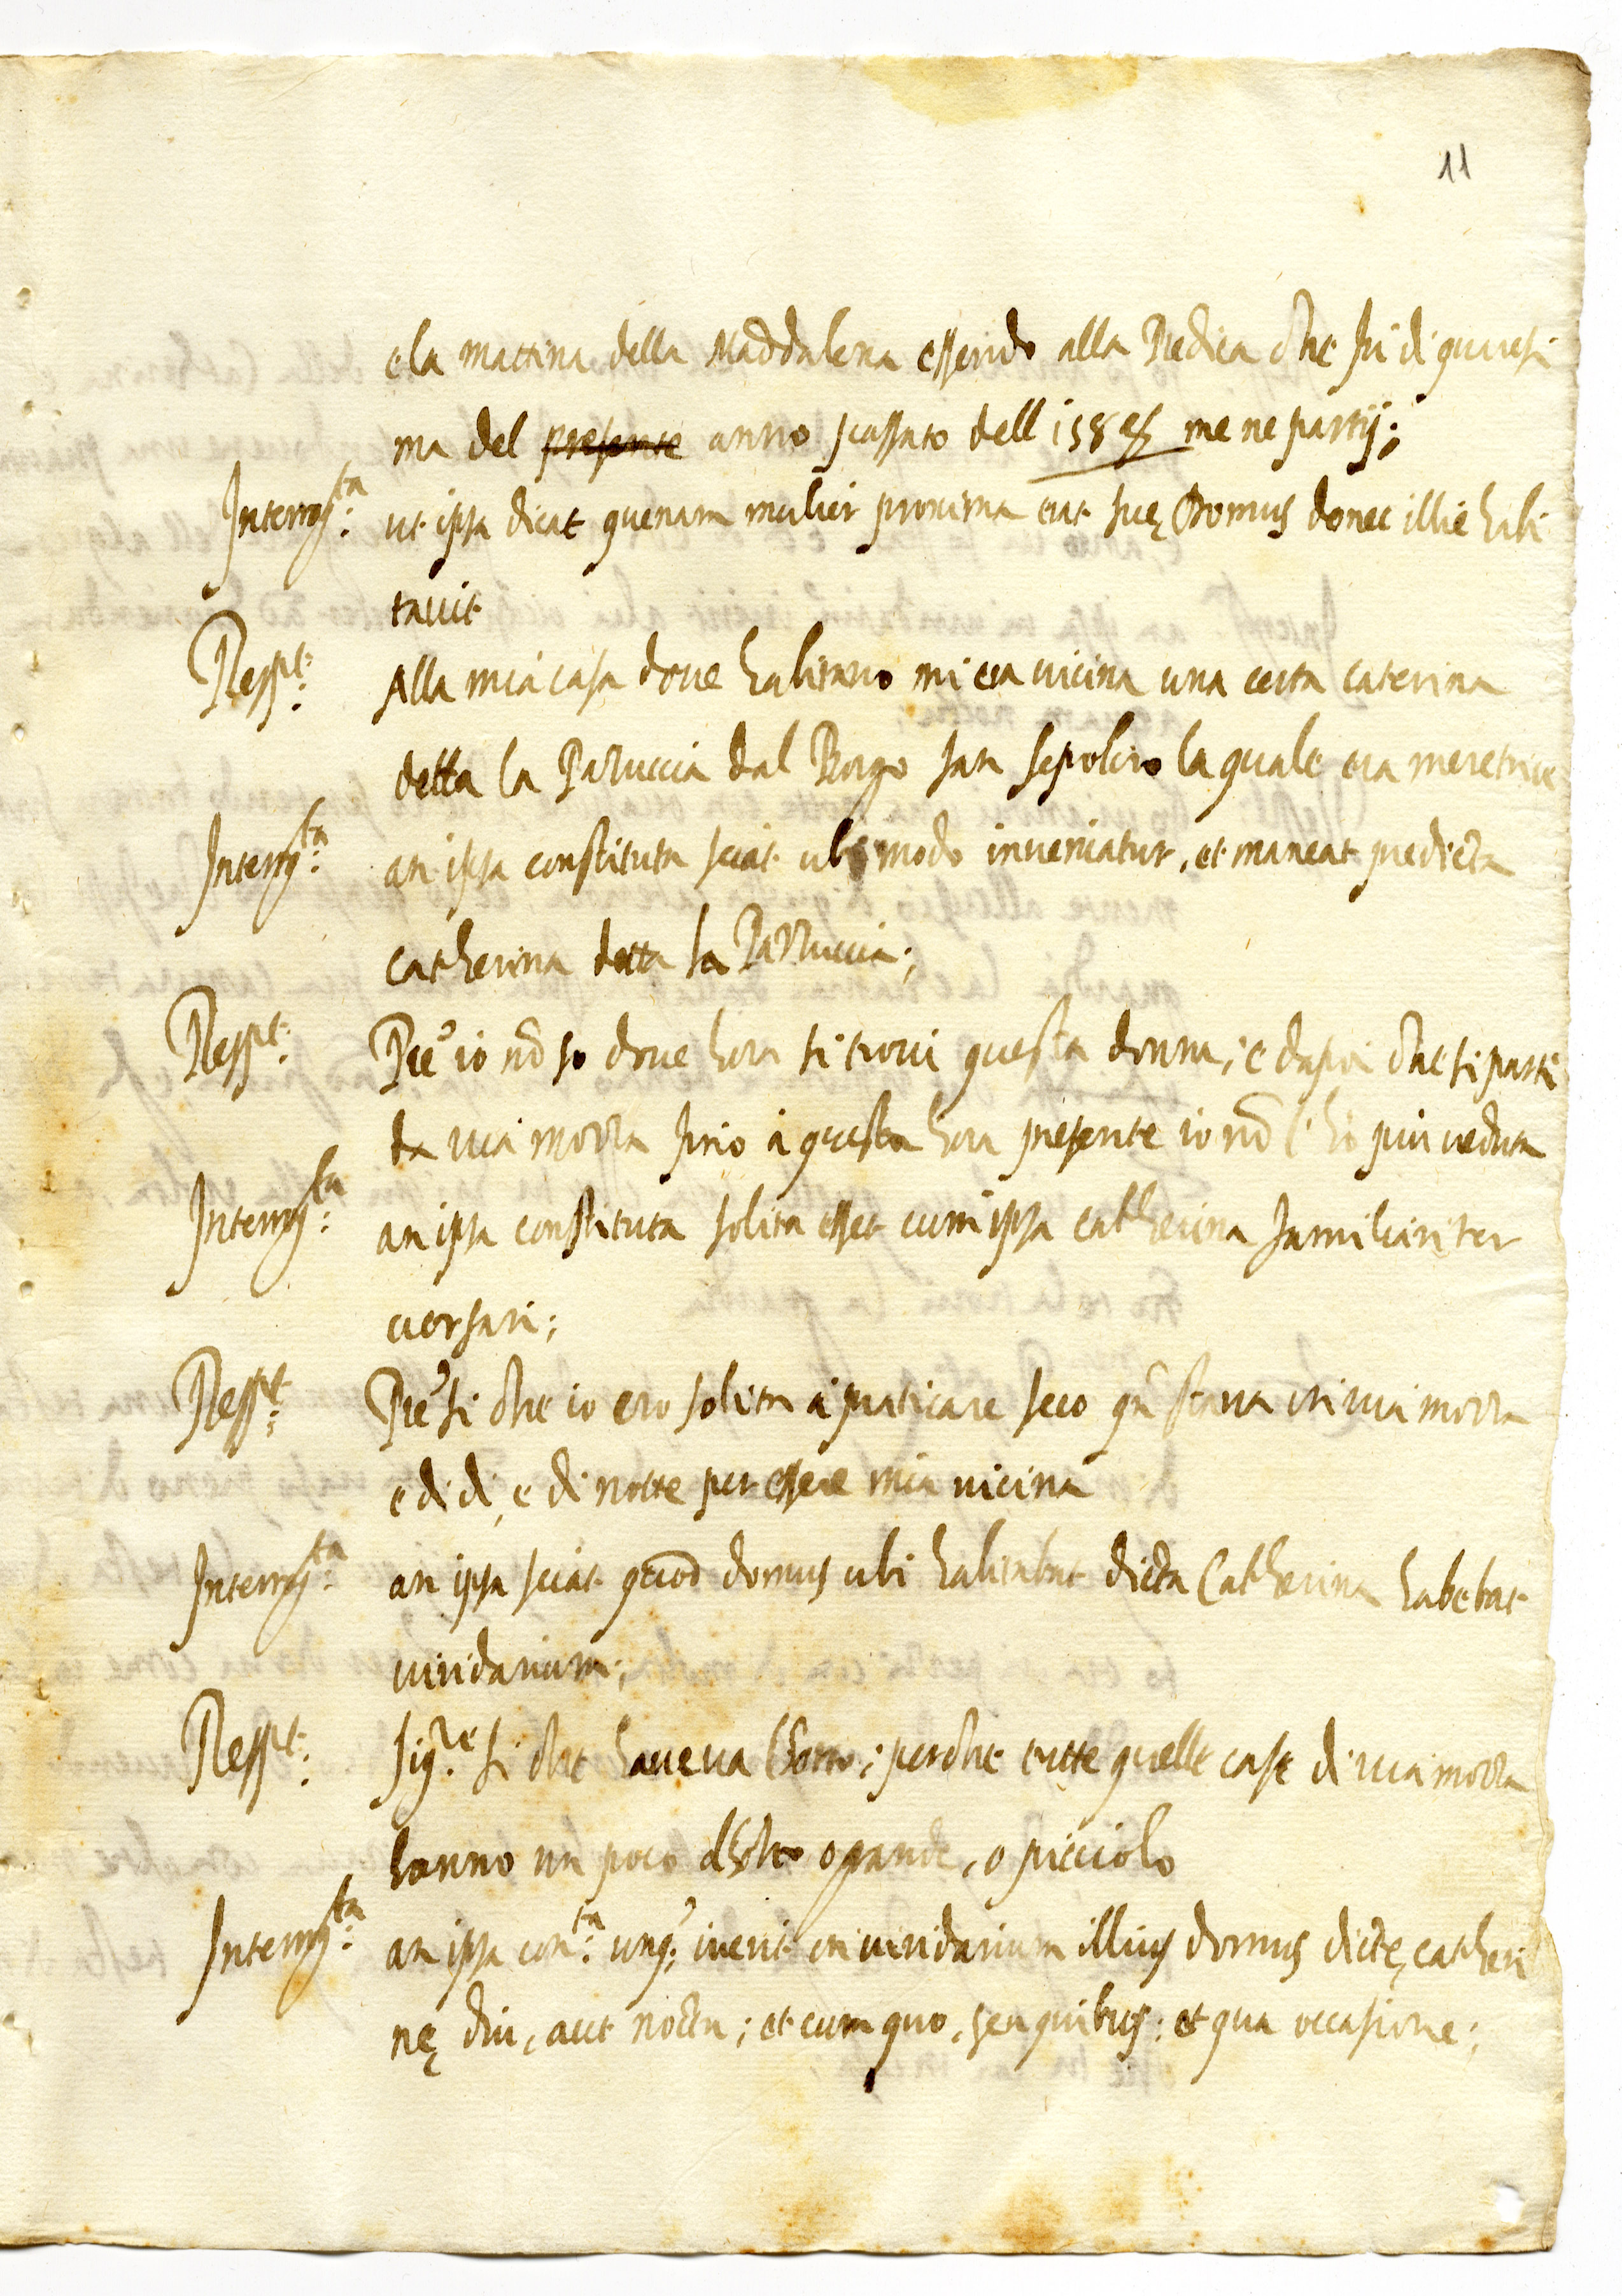 11
e la mattina della Maddalena essendo alla Predica che fu di quaresi
ma del presente anno scassato dell 1585 me ne partij;
Interrog.ta ut ipsa dicat quenam mulier proxima erat suę Domus donec illic habi
tauit
Resp.t Alla mia casa doue habitauo mi era uicina una certa caterina
detta la Parruccia dal Borgo san sepolcro la quale era meretrice
Interrog.ta an ipsa constituta sciat ubi modo inueniatur, et maneat predicta
catherina detta la Parruccia;
Resp.t Pre io nõ so doue hora si troui questa donna, e dapoi che si parti
da uia mozza fino à questa hora presente io nõ l'hò piu ueduta
Interrog.ta an ipsa constituta solita esset cum ipsa catherina familiariter
uersari;
Resp.t Pre si che io ero solita à praticare seco qñ staua in uia mozza
e di dì, e di notte per essere mia uicina
Interrog.ta an ipsa sciat quod domus ubi habitabat dicta Catherina habebat
uiridarium;
Resp.t sig.re si che haueua l'horto; perche tutte quelle case di uia mozza
hanno un poco d'horto o grande, o picciolo
Interrog.ta an ipsa con.ta unq. iuerit in uiridarium illius domus dictę catheri
nę diu, aut noctu; et cum quo, seu quibus; et qua occasione;